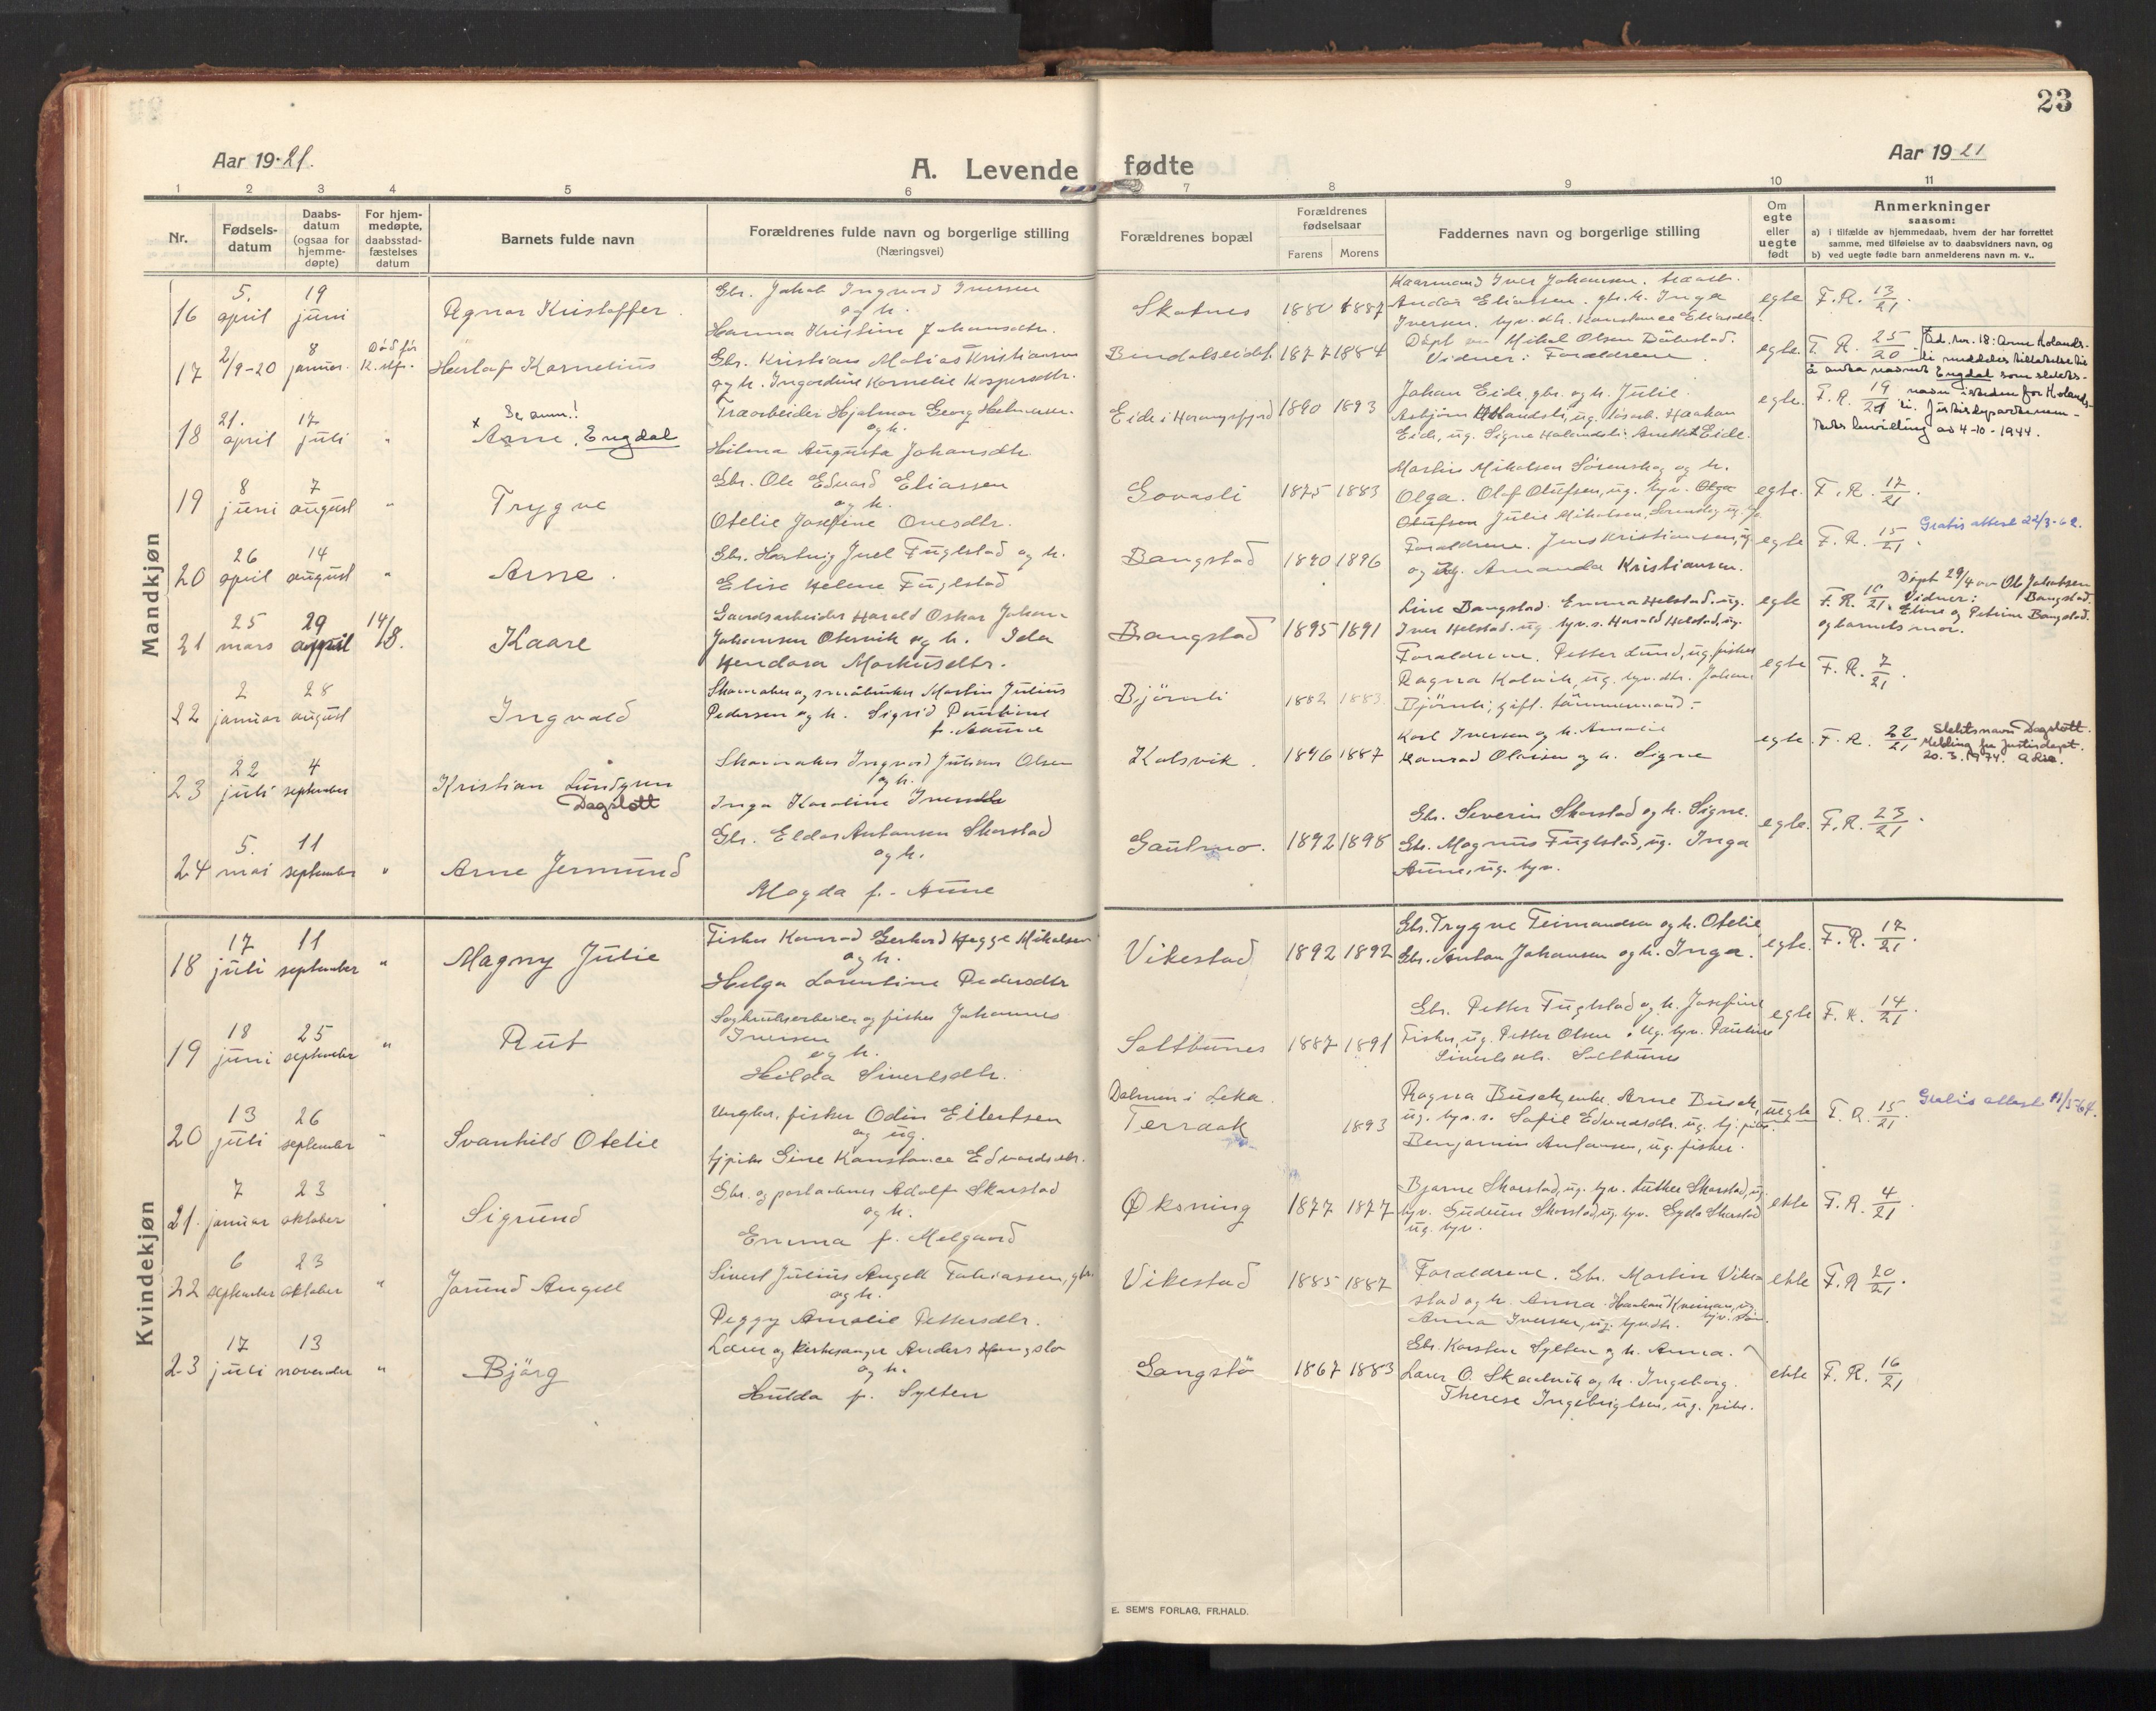 23
Aar 1921.
A. Levende fødte
Aar 1921
1 2 3 4 5 6 7 8 9 10 11
Nr.
Fødsels-
datum
Daabs-
datum
(ogsaa for
hjemme-
døpte)
For hjem-
medøpte,
daabsstad-
fæstelses
datum
Barnets fulde navn
Forældrenes fulde navn og borgerlige stilling
(Næringsvei)
Forældrenes bopæl
Forældrenes
fødselsaar
Farens Morens
Faddernes navn og borgerlige stilling
Om
egte
eller
uegte
født
Anmerkninger
saasom:
a) i tilfælde av hjemmedaab, hvem der har forrettet
samme, med tilføielse av to daabsvidners navn, og
b) ved uegte fødte barn anmelderens navn m. v..
Mandkjøn
16
5. april
19 juni
Agnar Kristoffer.
Gbr. Jakob Ingvard Iversen
og h.
Hanna Kristine Johansdtr.
Skotnes
1880 1887
Iver Johansen.
Andor Eliassen. gbr. h. Inga
Iversen. tyv. dtr. Konstance Eliasdtr.
egte
F.R. 13/21.
17
2/9-20
8 januar.
Død før
12. stf.
Herlaf Kornelius
Gbr. Kristian Matias Kristiansen
og h. Ingerdine Kornelie Kaspersdtr.
Bindalseidet.
1877 1884
Døpt av Mikal Olsen Bøkestad.
Vidner: Forældrene
egte.
F. R. 25/20.
18
21. april
17. juli
"
Se anm.!
x Arne. Engdal
Træarbeider Hjalmar Georg
og h.
Hilma Augusta Johansdtr.
Eide i
1890 1893
Johan Eide, gbr. og h. Julie.
Asbjørn Holandsli, ug. Haakon
Eide, ug. Signe Holandsli. Anette Eide.
egte.
F. R. 19/21
Ad. nr. 18: Arne Holands-
li meddeles tillatelse til
å anta navnet Engdal som slekts-
navn isteden for Holands-
li. Justisdepartemen-
tets bevilling av 4-10-1944.
19
8 juni
7 august
"
Trygve
Gbr. Ole Edvard Eliassen
og h.
Otelie Josefine Onesdtr.
Govasli
1875 1883
Martin Mikalsen Sørenskog og h.
Olga. Olaf Olufsen, ug. tyv. Olga
Olufsen Julie Mikalsen, Sørenskog ug.
egte.
F. R. 17/21.
20
26 april
14 august
"
Arne.
Gbr. Hartvig Juel Fuglstad og h.
Elise Helene Fuglstad
Bangstad
1890 1896
Forældrene. Jens Kristiansen, ug
og ug. Amanda Kristiansen.
egte
F. R. 15/21.
Gratis attest 22/3-62.
21
25 mars
29 april
14/8.
Kaare
Gaardsarbeider Harald Oskar Johan
Johansen Otervik og h. Ida
Hendora Markusdtr.
Bangstad
1895 1891
Line Bangstad. Emma Helstad. ug.
Iver Helstad. ug. tyv. s. Harald Helstad, ug.
egte
F. R. 16/21.
Døpt 29/4 av Ole Jakobsen
Vidner: Bangstad.
Eline og Petrine Bangstad.
og barnets mor.
22
2 januar
28 august
Ingvald
Skomaker og småbruker Martin Julius
Pedersen og h. Sigrid Pauline
f. Aune
Bjørnli
1882 1883
Forældrene. Petter Lund, ug. fisker
Ragna Kolvik, ug. tyv. dtr. Johan
Bjørnli, gift. tømmermand.-
egte
F. R. 7/21.
23
22 juli
4 september
Kristian Lundgren
Dagslott
Skomaker Ingvard Julius Olsen
og h.
Inga Karoline Iversdtr
Kalsvik.
1896 1887
Karl Iversen og h. Amalie
Konrad Olaisen og h. Signe
egte.
F. R. 22/21
Slektsnavn Dagslott.
Melding fra Justisdept.
20.3.1974.
24
5. mai
11 september
"
Arne Jermund
Gbr. Eldor Antonsen Skarstad
og h.
Magda f. Aune
Gaulmo.
1892 1898
Gbr. Severin Skarstad og h. Signe.
Gbr. Magnus Fuglstad, ug. Inga
Aune, ug. tyv.
egte.
F. R. 23/21.
Kvindekjøn
18
17 juli
11 september
"
Magny Julie
Fisker Konrad Gerhard Hegge Mikalsen
og h.
Helga Laurentine Pedersdtr
Vikestad
1892 1892
Gbr. Trygve Feimandsen og h. Otelie
Gbr. Anton Johansen og h. Inga.
egte.
F. R. 17/21.
19
18 juni
25 september
"
Rut
Sagbruksarbeider og fisker Johannes
Iversen
og h.
Hilda Sivertsdtr.
Saltbunes
1887 1891
Gbr. Petter Fuglstad og h. Josefine
Fisker, ug. Petter Olsen. Ug. tyv. Pauline
Sivertsdtr. Saltbunes
egte
F. R. 14/21.
20
13 juli
26 september
"
Svanhild Otelie
Ungkar, fisker Odin Eilertsen
og ug.
tjpike Gine Konstance Edvardsdtr.
Dalmen i Leka.
Terraak
1893
Ragna Busch, enke. Arne Busch,
ug. tyv. s. Sofie Edvardsdtr. ug. tj. pike.
Benjamin Antonsen, ug. fisker.
uegte
F. R. 15/21.
Gratis attest 11/5-64.
21.
7 januar
23 oktober
"
Sigrund
Gbr. og postaabner Adolf Skarstad
og h.
Emma f. Melgaard
Øksning
1877 1877
Bjarne Skarstad, ug. tyv. Luther Skarstad, ug
tyv. Gudrun Skarstad, ug. tyv. Gyda Skarstad
ug. tyv.
ekte
F. R. 4/21.
22
6 september
23 oktober
"
Jørund Angell
Sivert Julius Angell Tobiassen, gbr.
og h.
Peggy Amalie Pettersdtr.
Vikestad
1885 1887
Forældrene. Gbr. Martin Vike-
stad og h. Anna. Haakon Kveinan, ug.
Anna Iversen, ug. tyvdtr. tyv. søn.
ekte
F. R 20/21.
23
17 juli
13 november
"
Bjørg
Lærer og kirkesanger Anders Hongslo
og h.
Hulda f. Sylten
Gangstø
1867 1883
Gbr. Karsten Sylten og h. Anna.
Lærer O. Skaalvik og h. Ingeborg.
Therese Ingebrigtsen, ug. pike.
ekte
F. R. 16/21
E. SEM'S FORLAG, FR.HALD.